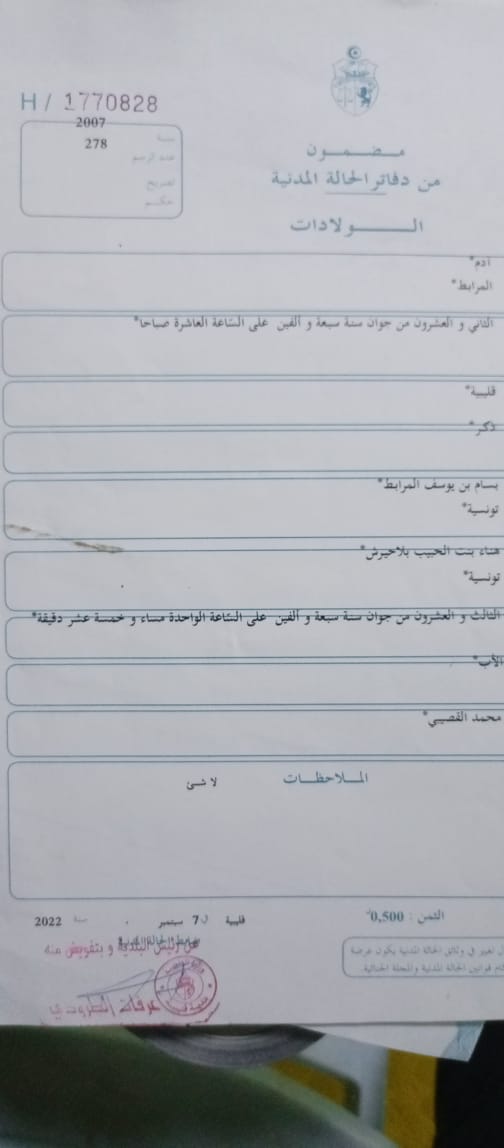 H / 1770828
مضمون
من دفاتر الحالة المدنية
الولادات
2007
سنة
278
عدد الرسم
تصريح
حكم
آدم*
المرابط*
الثاني و العشرون من جوان سنة سبعة و ألفين على الساعة العاشرة صباحا*
قليبية*
ذكر*
بسام بن يوسف المرابط*
تونسية*
هناء بنت الحبيب بلاحيرش*
تونسية*
الثالث و العشرون من جوان سنة سبعة و ألفين على الساعة الواحدة مساء و خمسة عشر دقيقة*
الأب*
محمد القصيبي*
الملاحظات
لا شئ
الثمن : 0,500د
قليبية في 7 سبتمبر سنة 2022
تغيير في وثائق الحالة المدنية يكون عرضة
قوانين الحالة المدنية والمجلة الجنائية
عن رئيس البلدية و بتفويض منه
ضابط الحالة المدنية
عرفات الطرودي